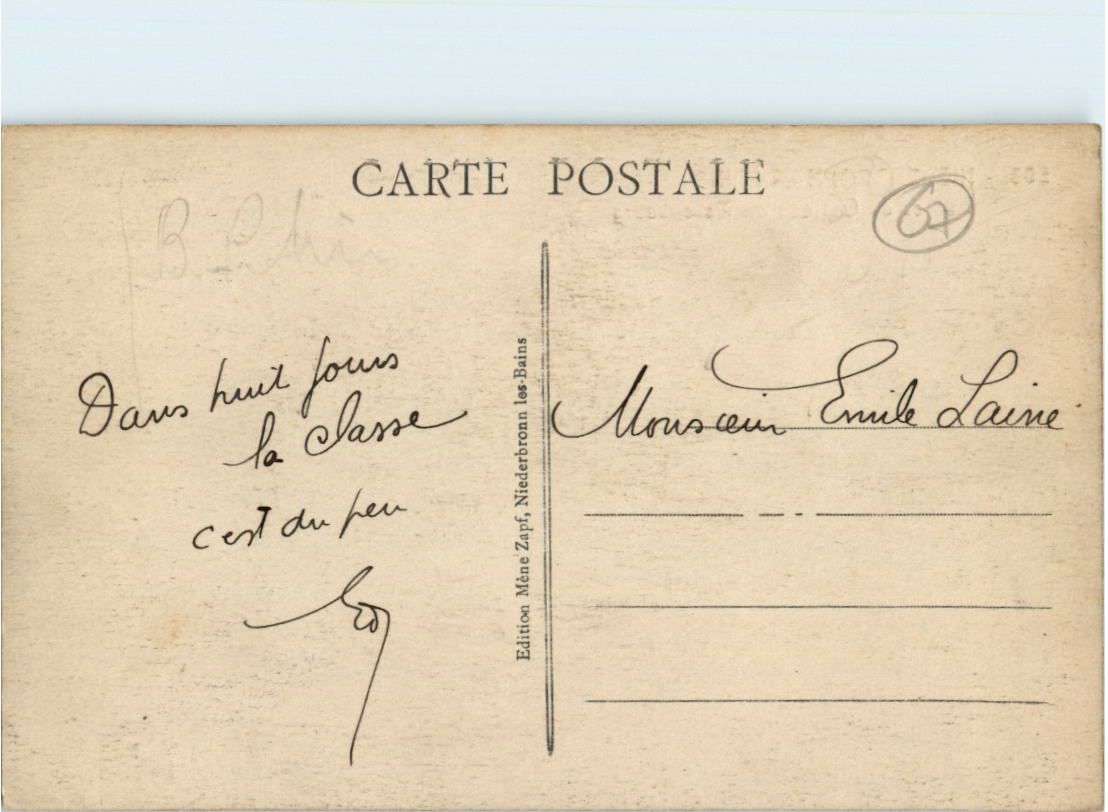 CARTE POSTALE
67
B. Rhin
Dans huit jours
la classe
c'est du peu
Monsieur Emile Lainé
Edition Mène Zapf, Niederbronn les-Bains